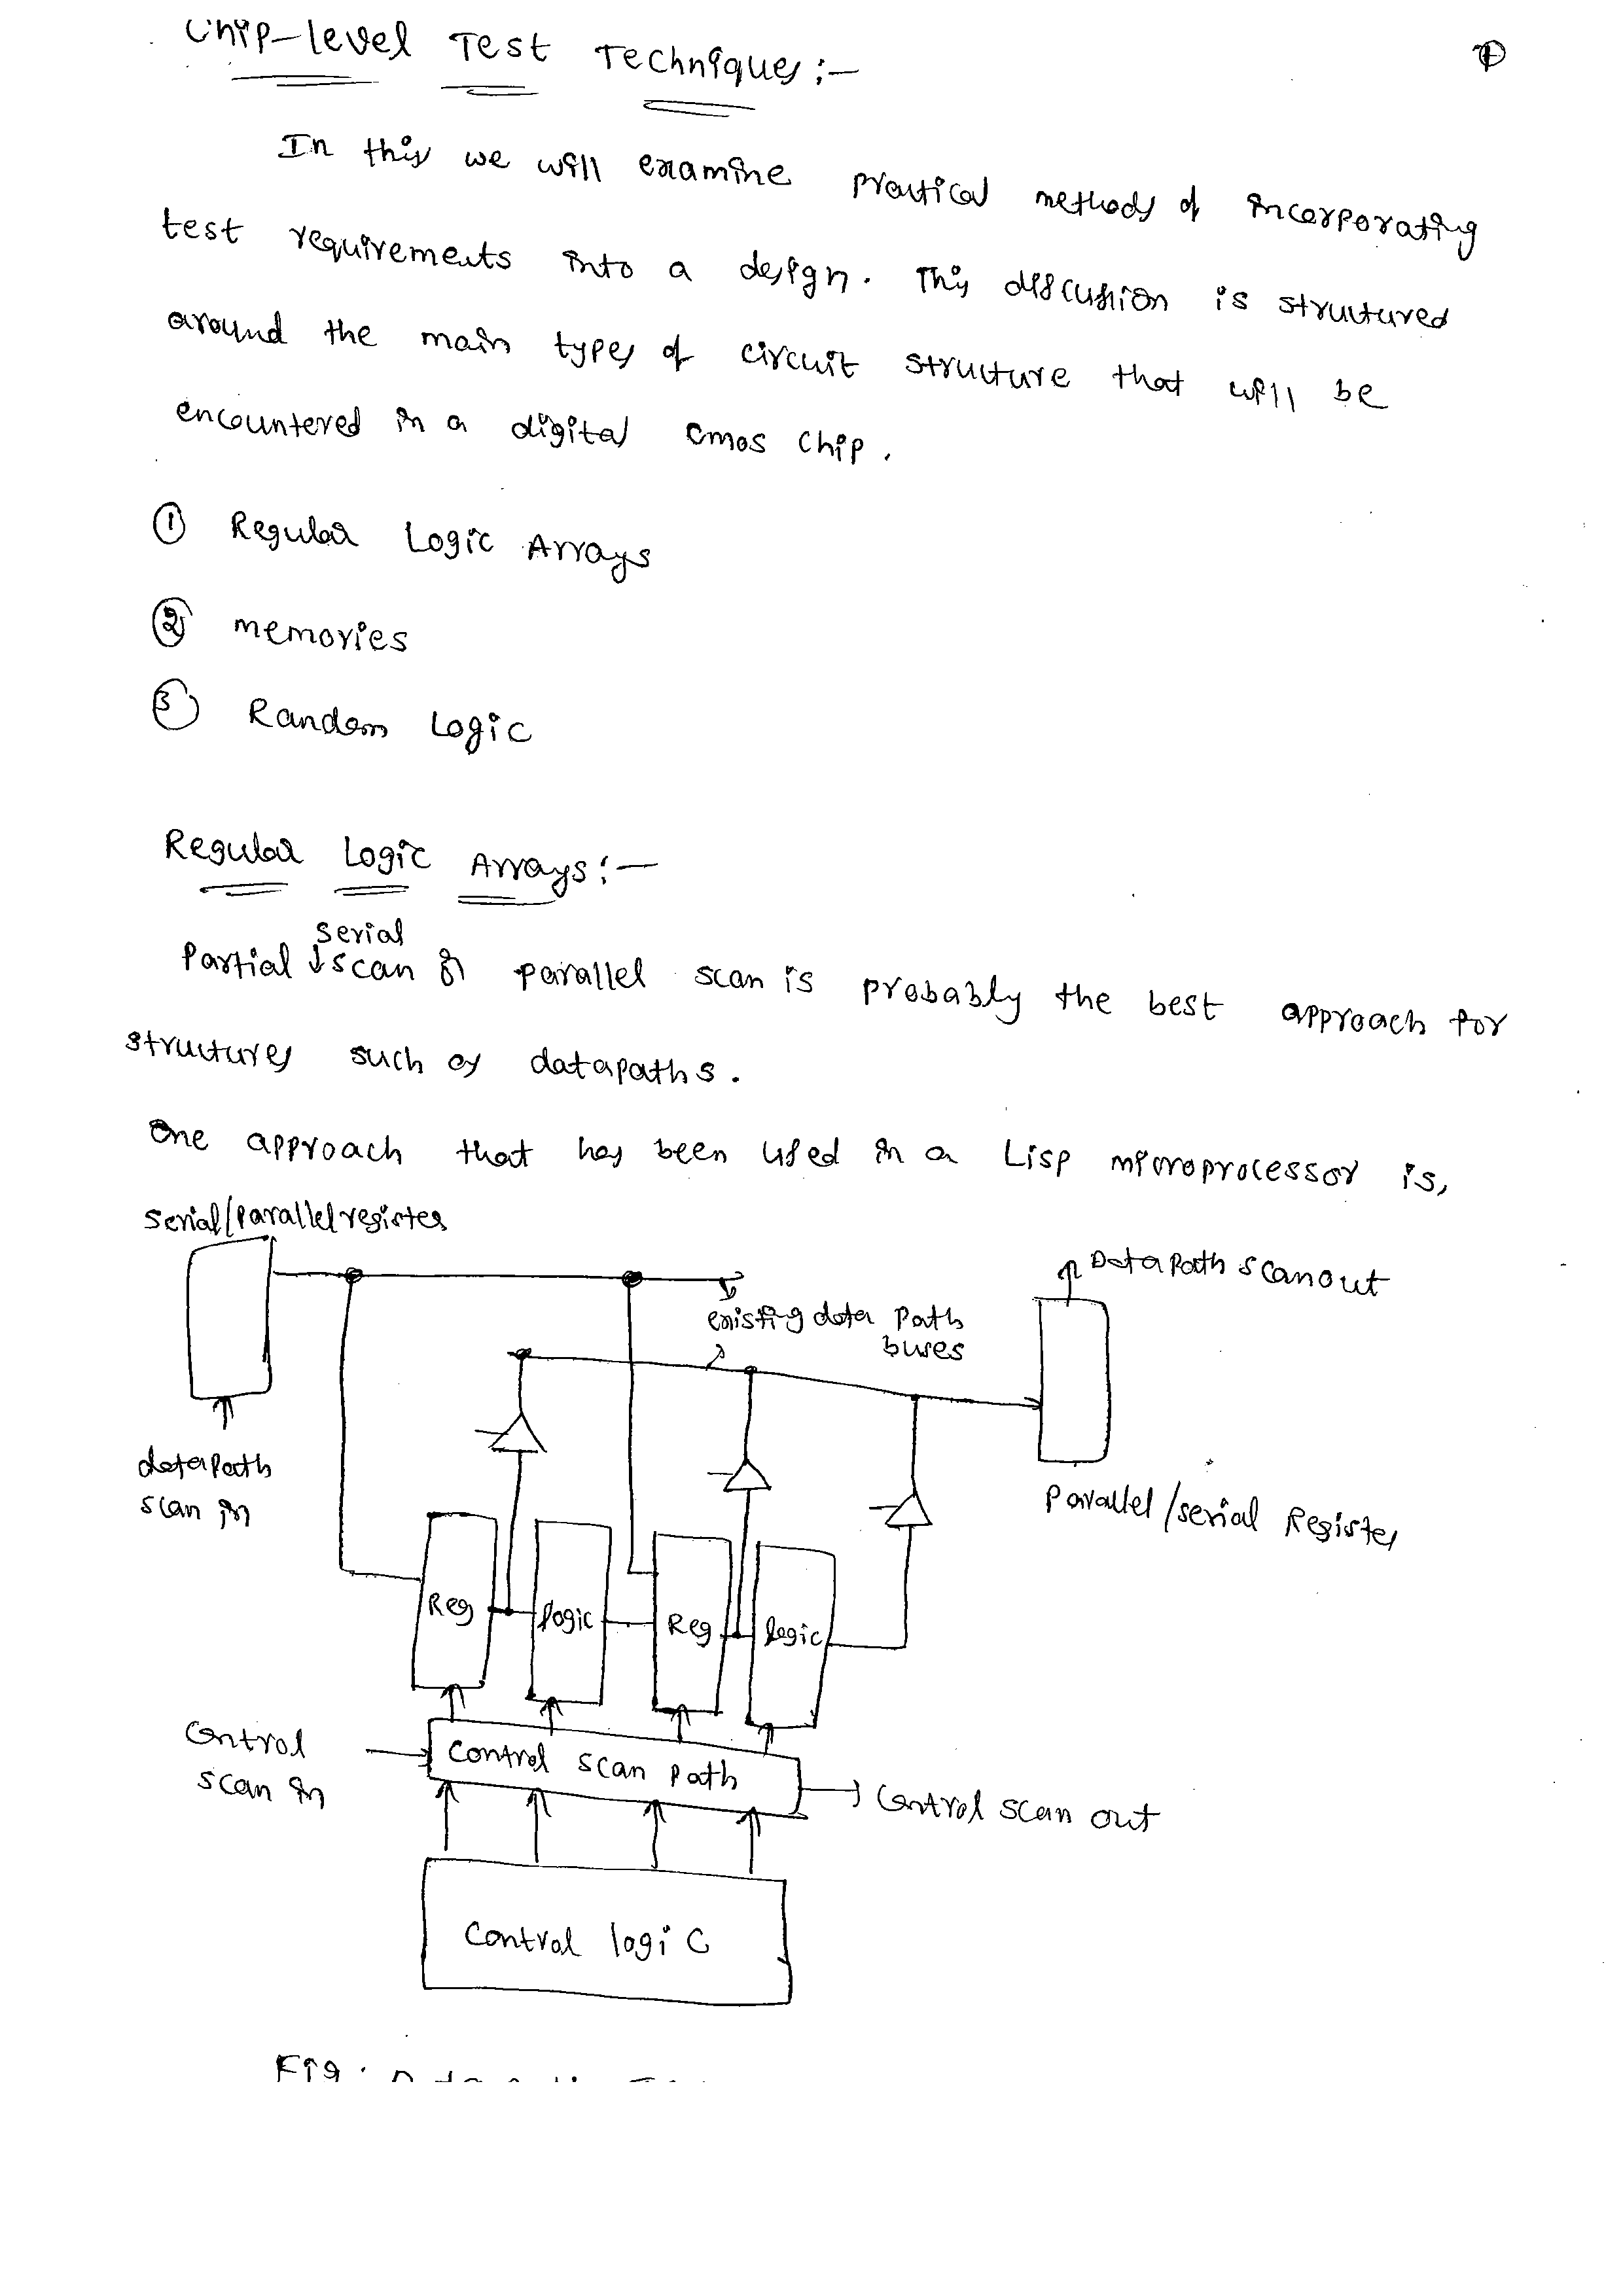 Chip-level Test Techniques :-
In this we will examine practical methods of incorporating
test requirements into a design. This discussion is structured
around the main types of circuit structure that will be
encountered in a digital cmos chip.
① Regular Logic Arrays
② memories
③ Random Logic
Regular Logic Arrays :-
serial
Partial ↓ scan or parallel scan is probably the best approach for
structures such as datapaths.
One approach that has been used in a Lisp microprocessor is,
Serial/parallel register
Data Path scanout
existing data Path
buses
data Path
scan in
Parallel/serial Register
Reg logic Reg logic
Control
scan in
Control scan path
Control scan out
Control logic
Fig.